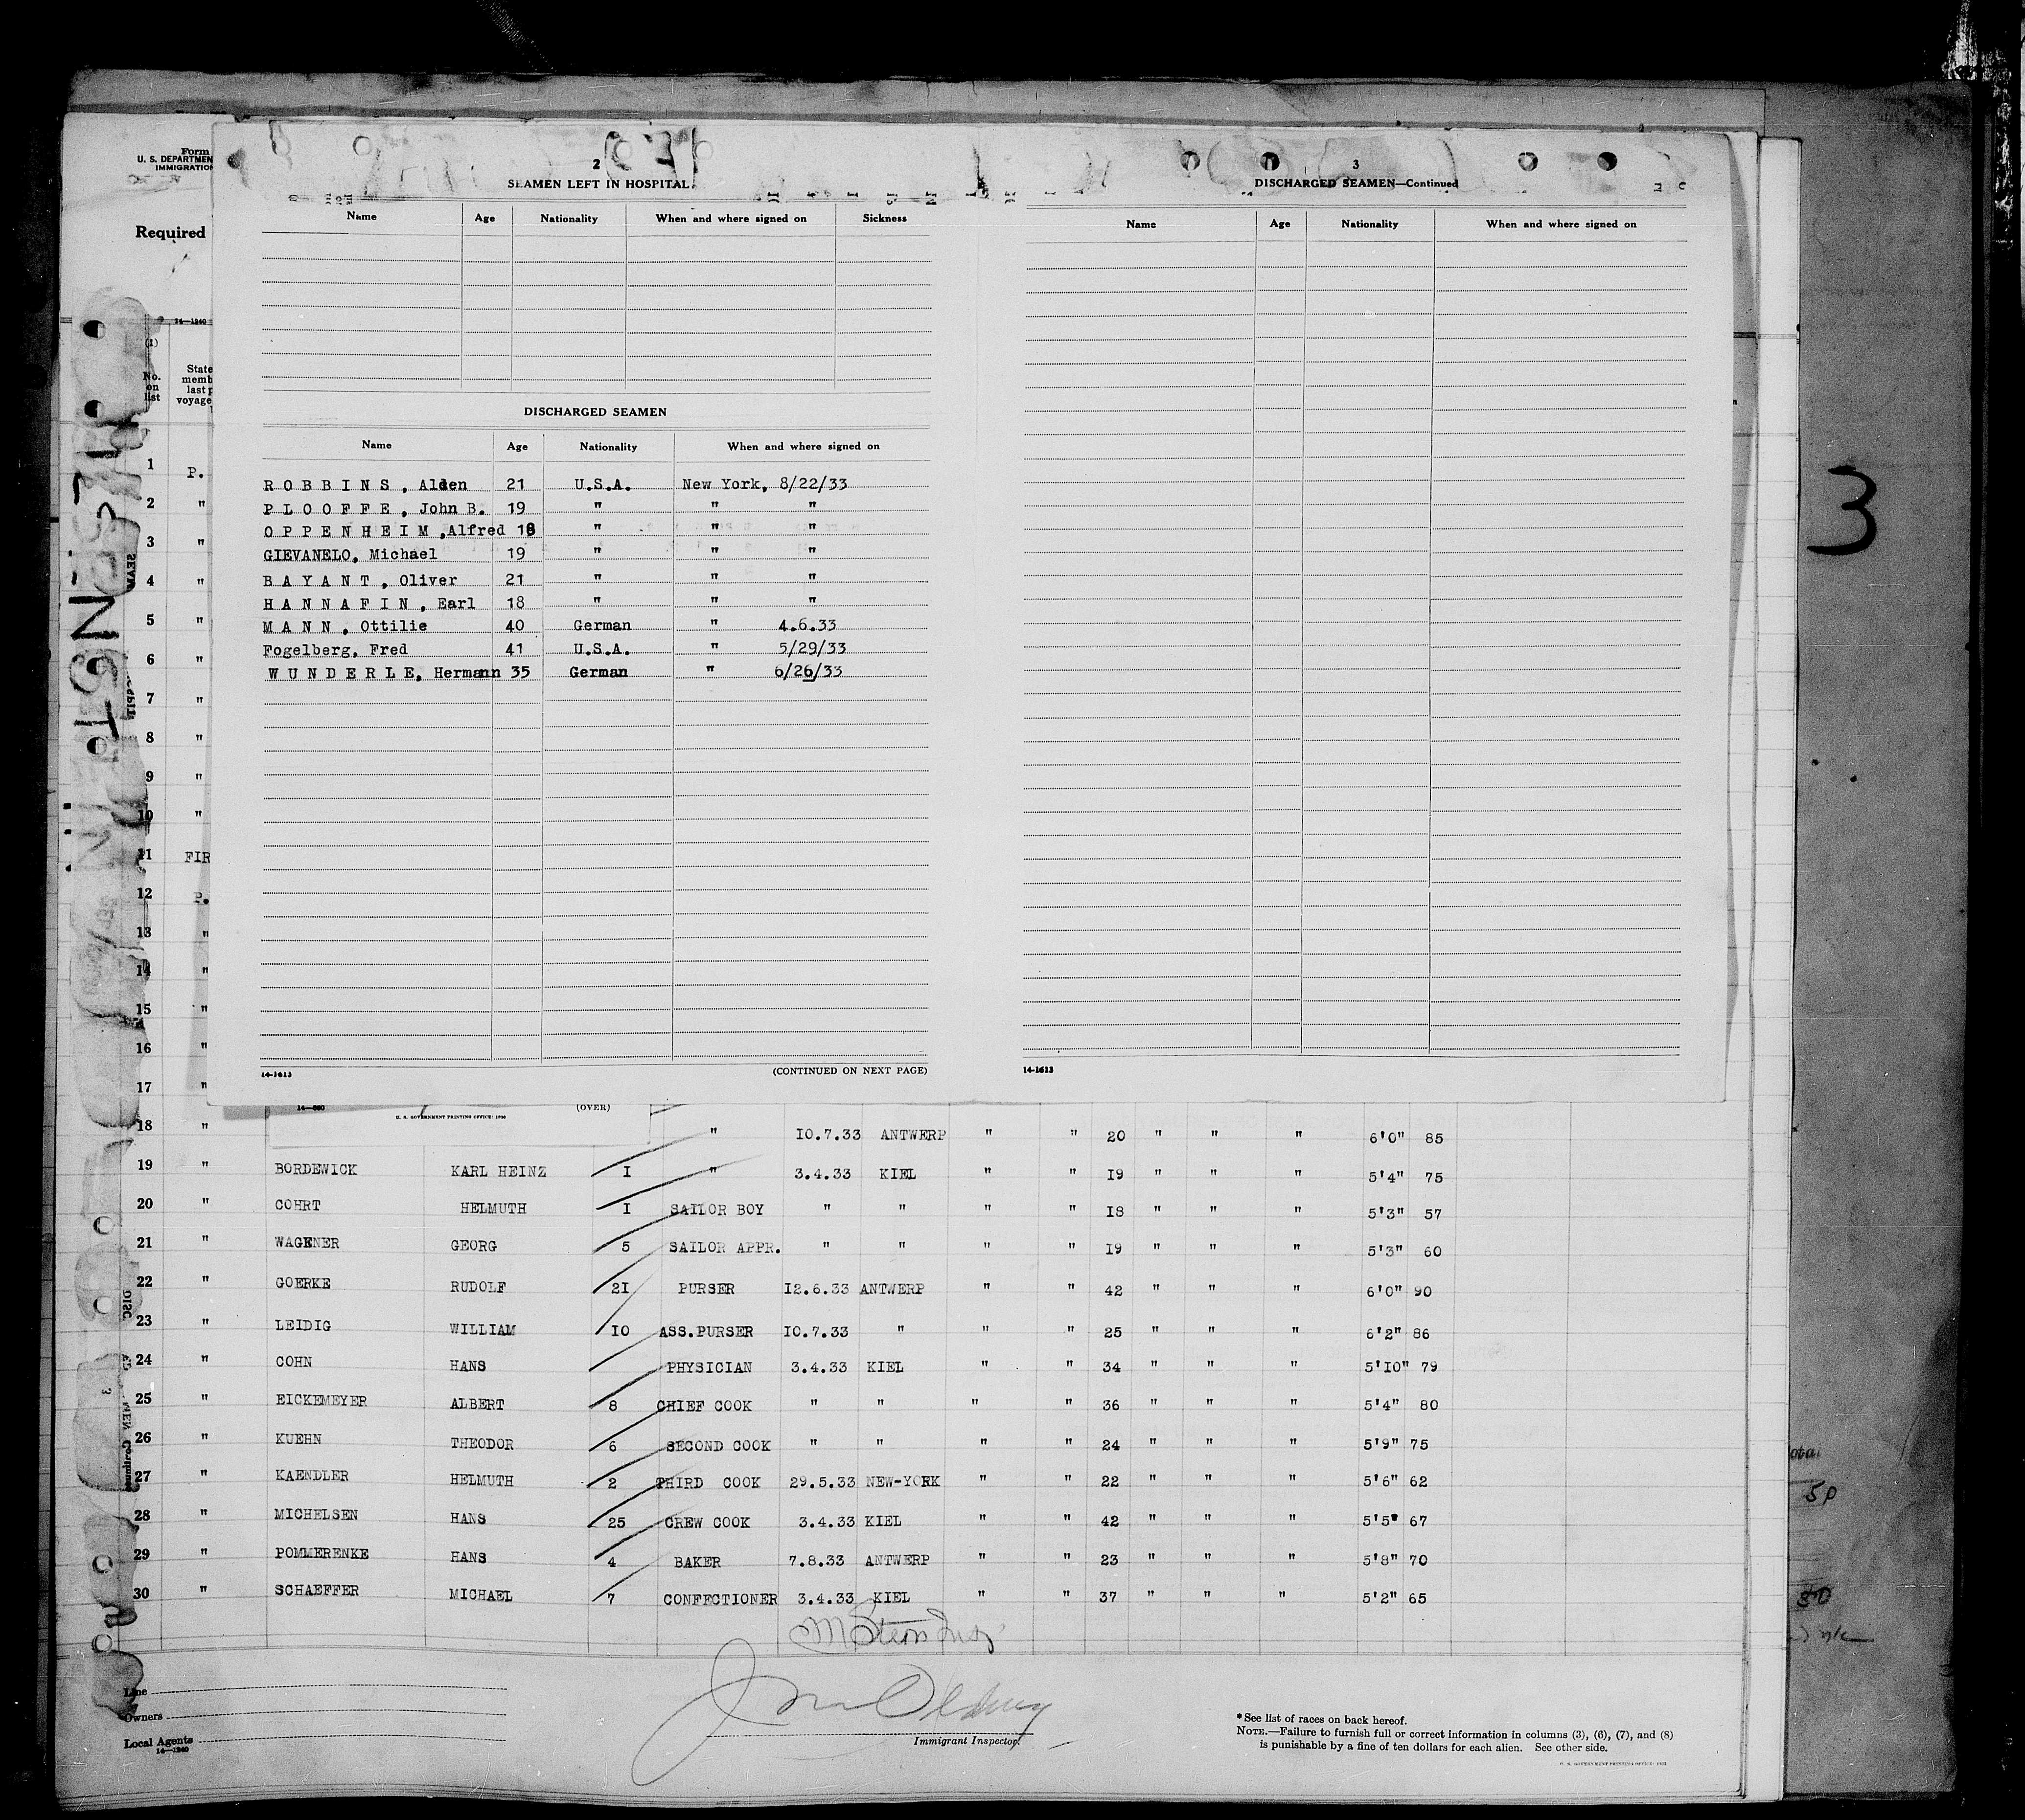 Form
U. S. DEPARTMEN
IMMIGRATION
Required
14—1240
(1)
No. on list
State
memb
last p
voyage
2
SEAMEN LEFT IN HOSPITAL
Name Age Nationality When and where signed on Sickness
DISCHARGED SEAMEN
Name Age Nationality When and where signed on
ROBBINS, Alden 21 U.S.A. New York, 8/22/33
PLOOFFE, John B. 19 " " "
OPPENHEIM, Alfred 18 " " "
GIEVANELO, Michael 19 " " "
BAYANT, Oliver 21 " " "
HANNAFIN, Earl 18 " " "
MANN, Ottilie 40 German " 4.6.33
Fogelberg, Fred 41 U.S.A. " 5/29/33
WUNDERLE, Hermann 35 German " 6/26/33
14-1613 (CONTINUED ON NEXT PAGE)
3
DISCHARGED SEAMEN—Continued
Name Age Nationality When and where signed on
14-1613
3
1 P.
2 "
3 "
4 "
5 "
6 "
7 "
8 "
9 "
10 "
11 FIR
12 P.
13 "
14 "
15 "
16 "
17 "
U. S. GOVERNMENT PRINTING OFFICE: (OVER)
18 " " 10.7.33 ANTWERP " " 20 " " " 6'0" 85
19 " BORDEWICK KARL HEINZ I " 3.4.33 KIEL " " I9 " " " 5'4" 75
20 " COHRT HELMUTH I SAILOR BOY " " " " I8 " " " 5'3" 57
21 " WAGENER GEORG 5 SAILOR APPR. " " " " I9 " " " 5'3" 60
22 " GOERKE RUDOLF 2I PURSER I2.6.33 ANTWERP " " 42 " " " 6'0" 90
23 " LEIDIG WILLIAM IO ASS.PURSER IO.7.33 " " " 25 " " " 6'2" 86
24 " COHN HANS PHYSICIAN 3.4.33 KIEL " " 34 " " " 5'IO" 79
25 " EICKEMEYER ALBERT 8 CHIEF COOK " " " " 36 " " " 5'4" 80
26 " KUEHN THEODOR 6 SECOND COOK " " " " 24 " " " 5'9" 75
27 " KAENDLER HELMUTH 2 THIRD COOK 29.5.33 NEW-YORK " " 22 " " " 5'6" 62
28 " MICHELSEN HANS 25 CREW COOK 3.4.33 KIEL " " 42 " " " 5'5" 67
29 " POMMERENKE HANS 4 BAKER 7.8.33 ANTWERP " " 23 " " " 5'8" 70
30 " SCHAEFFER MICHAEL 7 CONFECTIONER 3.4.33 KIEL " " 37 " " " 5'2" 65
50
Line
Owners
Local Agents
14—1240
Immigrant Inspector.
*See list of races on back hereof.
NOTE.—Failure to furnish full or correct information in columns (3), (6), (7), and (8)
is punishable by a fine of ten dollars for each alien. See other side.